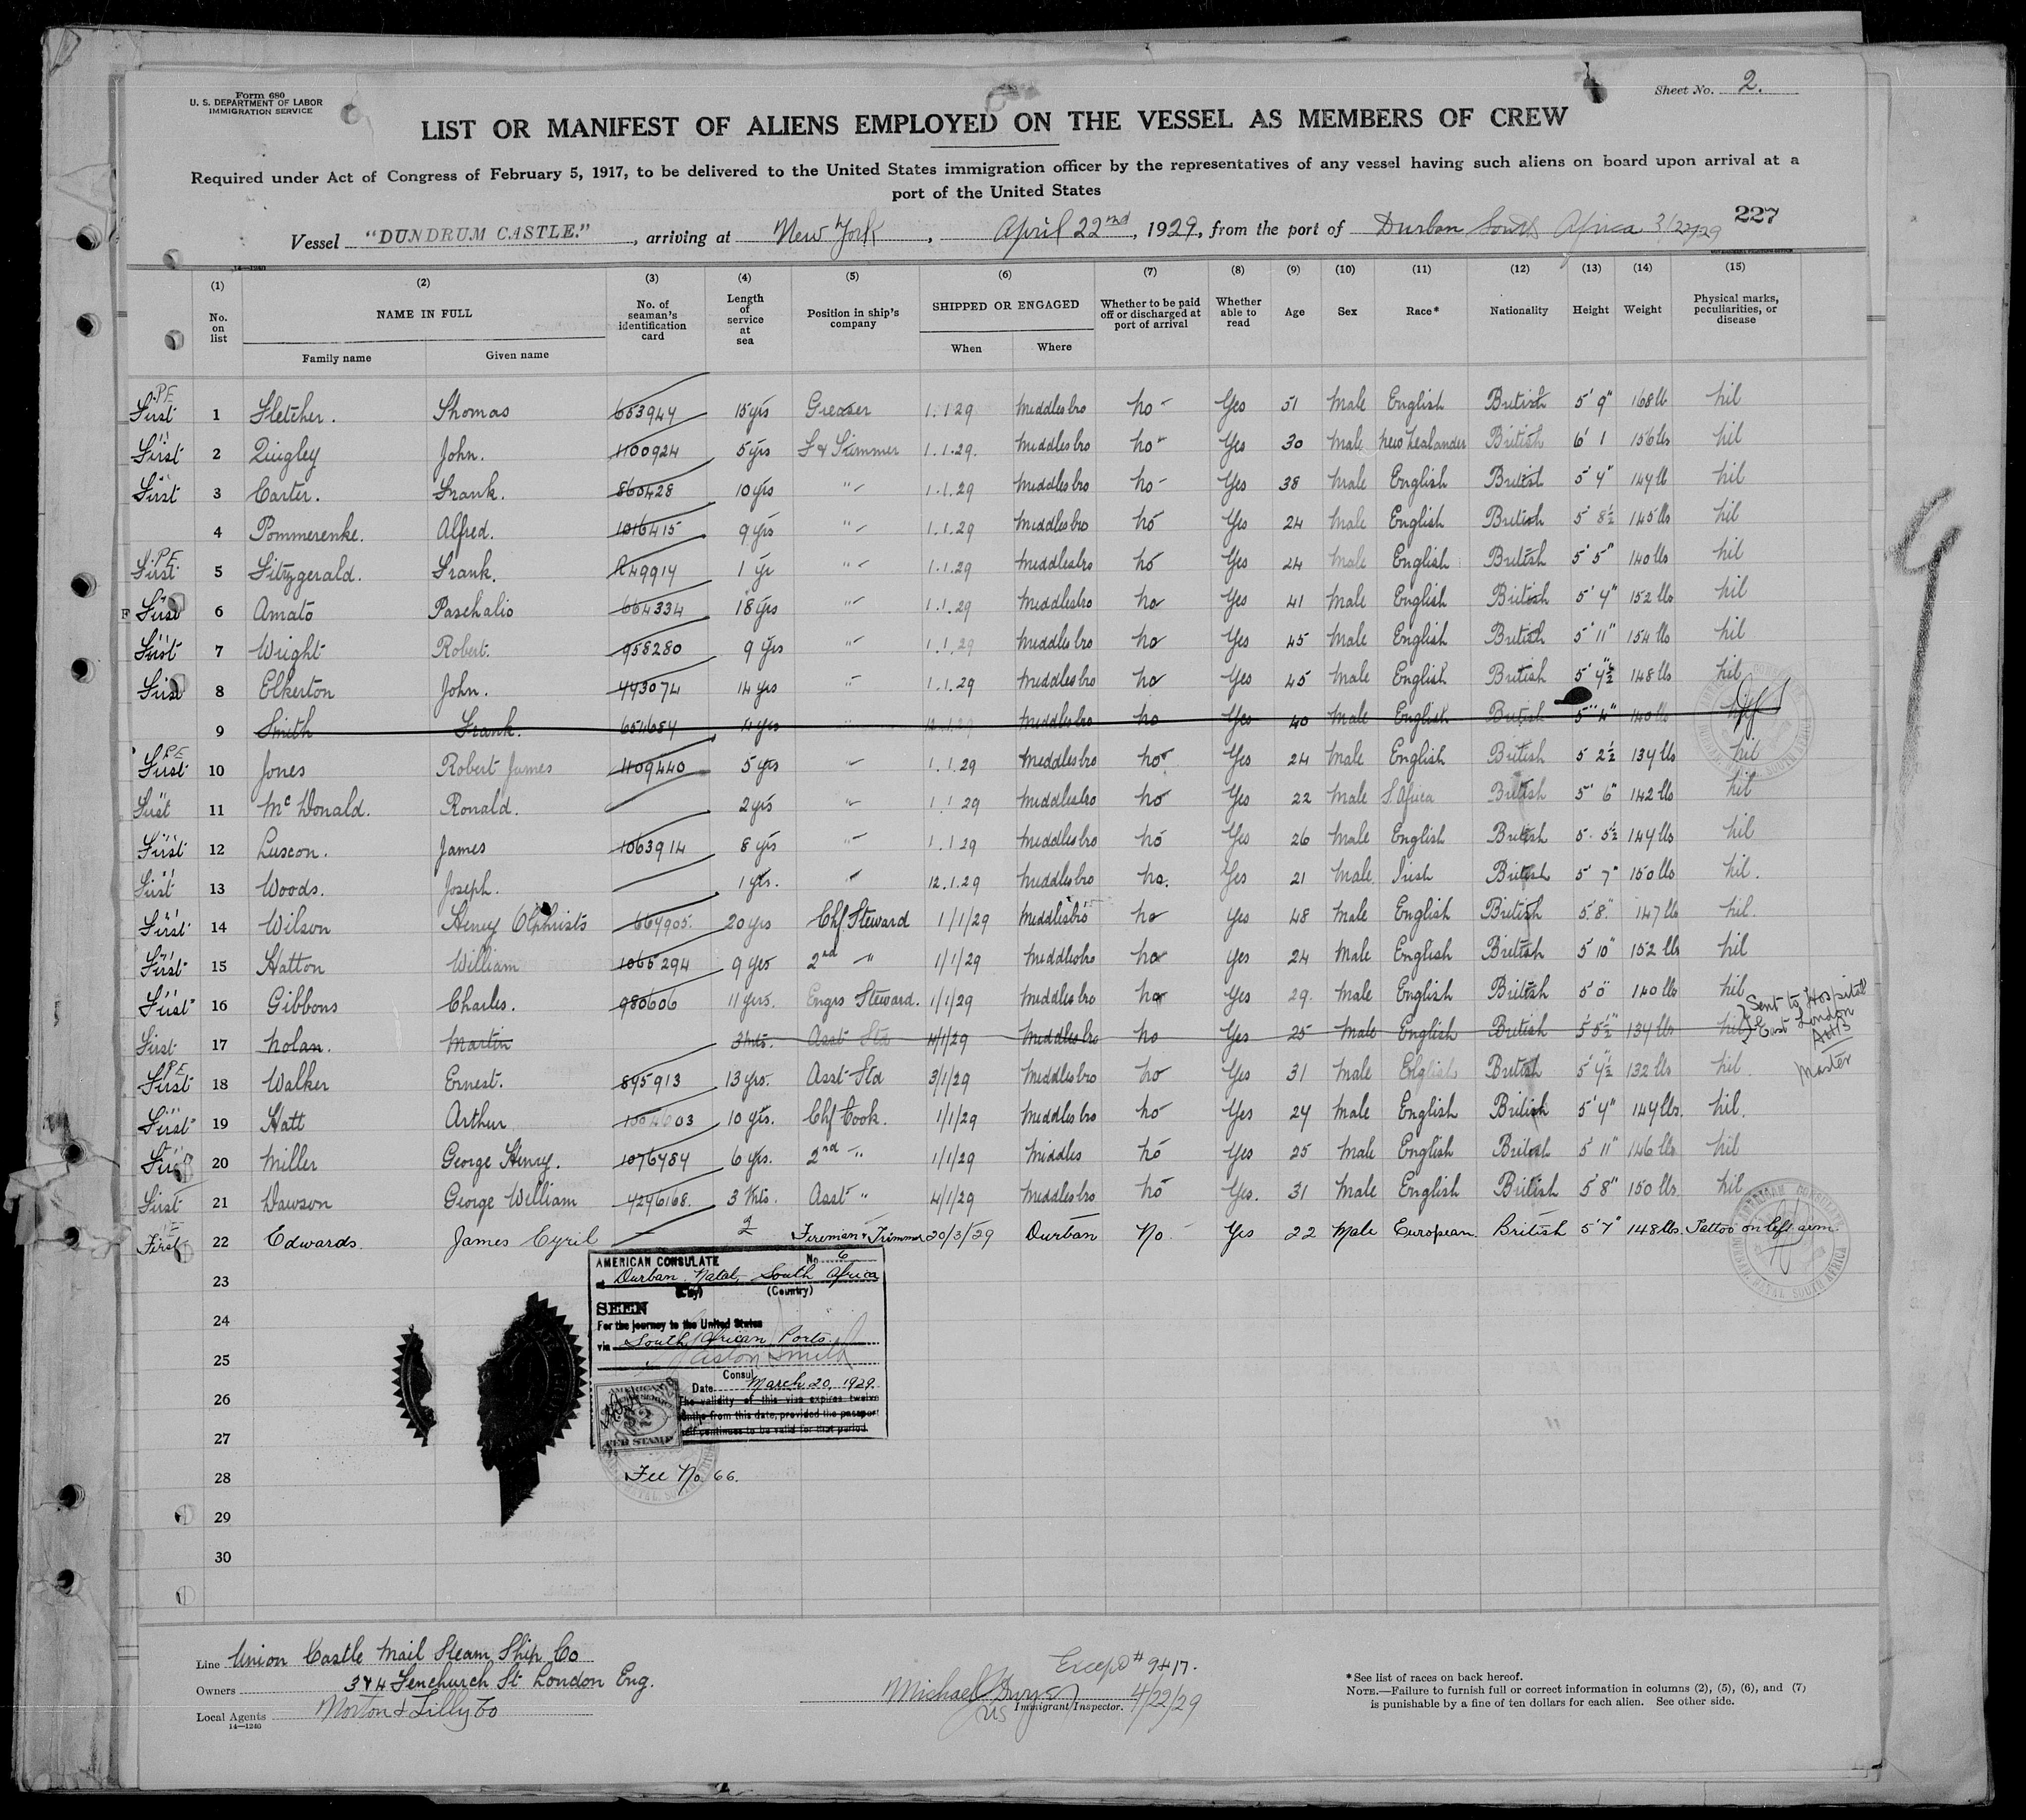 Form 680
U. S. DEPARTMENT OF LABOR
IMMIGRATION SERVICE
Sheet No. 2.
LIST OR MANIFEST OF ALIENS EMPLOYED ON THE VESSEL AS MEMBERS OF CREW
Required under Act of Congress of February 5, 1917, to be delivered to the United States immigration officer by the representatives of any vessel having such aliens on board upon arrival at a
port of the United States
Vessel "DUNDRUM CASTLE.", arriving at New York, April 22nd, 1929, from the port of Durban South Africa 3/22/29 227
14—1240
(1) No. on list (2) NAME IN FULL Family name Given name (3) No. of seaman's identification card (4) Length of service at sea (5) Position in ship's company (6) SHIPPED OR ENGAGED When Where (7) Whether to be paid off or discharged at port of arrival (8) Whether able to read (9) Age (10) Sex (11) Race* (12) Nationality (13) Height (14) Weight (15) Physical marks, peculiarities, or disease
P.E. First 1 Fletcher. Thomas 653944 15 yrs Greaser 1.1.29 Middlesbro No Yes 51 Male English British 5' 9" 168 lb Nil
First 2 Quigley John. 1100924 5 yrs F & Trimmer 1.1.29. Middlesbro No Yes 30 Male New Zealander British 6' 1 156 lbs Nil
First 3 Carter. Frank. 860428 10 yrs " 1.1.29 Middlesbro No Yes 38 Male English British 5' 4" 144 lb Nil
4 Pommerenke. Alfred. 1016415 9 yrs " 1.1.29 Middlesbro No Yes 24 Male English British 5' 8½ 145 lbs Nil
P.E. First 5 Fitzgerald. Frank. R49914 1 yr " 1.1.29 Middlesbro No Yes 24 Male English British 5' 5" 140 lbs Nil
F First 6 Amato Paschalio 664334 18 yrs " 1.1.29 Middlesbro No Yes 41 Male English British 5' 4" 152 lbs Nil
First 7 Wright Robert. 958280 9 yrs " 1.1.29 Middlesbro No Yes 45 Male English British 5' 11" 154 lbs Nil
First 8 Elkerton John. 443074 14 yrs " 1.1.29 Middlesbro No Yes 45 Male English British 5' 4½ 148 lbs Nil
9 Smith Frank. 651684 4 yrs " 12.1.29 Middlesbro No Yes 40 Male English British 5" 4" 140 lbs Nil
P.E. First 10 Jones Robert James 1109440 5 yrs " 1.1.29 Middlesbro No Yes 24 Male English British 5 2½ 134 lbs Nil
First 11 McDonald. Ronald. 2 yrs " 1.1.29 Middlesbro No Yes 22 Male S. Africa British 5' 6" 142 lbs Nil
First 12 Luscon. James 1063914 8 yrs " 1.1.29 Middlesbro No Yes 26 Male English British 5. 5½ 144 lbs Nil
First 13 Woods. Joseph. 1 yrs. " 12.1.29 Middlesbro No. Yes 21 Male. Irish British 5' 7" 150 lbs Nil.
First 14 Wilson Henry 664905. 20 yrs Chf Steward 1/1/29 Middlesbro No Yes 48 Male English British 5'8" 147 lb Nil.
First 15 Hatton William 1065294 9 yrs 2nd " 1/1/29 Middlesbro No Yes 24 Male English British 5' 10" 152 lbs Nil
First 16 Gibbons Charles. 980606 11 yrs. Engrs Steward. 1/1/29 Middlesbro No Yes 29. Male English British 5' 0" 140 lbs Nil
First 17 Nolan. Martin 3 Mts. Asst Std 4/1/29 Middlesbro No Yes 25 Male English British 5' 5½" 134 lbs Nil } Sent to Hospital East London
Master
P.E. First 18 Walker Ernest. 895913 13 yrs. Asst Std 3/1/29 Middlesbro No Yes 31 Male English British 5' 4½ 132 lbs Nil
First 19 Hatt Arthur 10 yrs. Chf Cook. 1/1/29 Middlesbro No Yes 24 Male English British 5' 4" 149 lbs. Nil.
First 20 Miller George Henry. 1076484 6 yrs. 2nd " 1/1/29 Middles No Yes 25 Male English British 5' 11" 146 lbs Nil
First 21 Dawson George William 4246168. 3 Mts. Asst " 4/1/29 Middlesbro No Yes. 31 Male English British 5' 8" 150 lbs. Nil
First 22 Edwards. James Cyril 2 Fireman & Trimmer 20/3/29 Durban No Yes 22 Male European British 5' 7" 148 lbs. Tattoo on left arm.
23
24
25
26
27
28
29
30
AMERICAN CONSULATE No. 6
at Durban Natal, South Africa
(City) (Country)
SEEN
For the journey to the United States
via South African Ports.
Consul
Date March 20, 1929.
The validity of this visa expires twelve
months from this date, provided the passport
itself continues to be valid for that period.
AMERICAN
$2
FEE STAMP
Fee No. 66.
Line Union Castle Mail Steam Ship Co
Owners 3 & 4 Fenchurch St London Eng.
Local Agents Morton & Lilly Co
14—1240
Except # 9 & 17.
Michael
US Immigrant Inspector. 4/22/29
*See list of races on back hereof.
NOTE.—Failure to furnish full or correct information in columns (2), (5), (6), and (7)
is punishable by a fine of ten dollars for each alien. See other side.